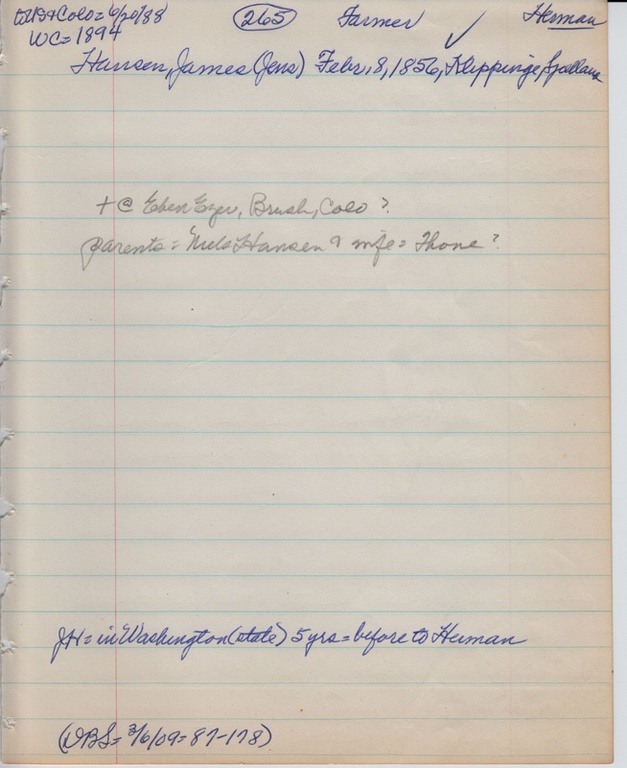 to US & Colo = 6/20/88 265 Farmer Herman
WC = 1894 ✓
Hansen, James (Jens) Febr. 8, 1856, Klippinge, Sjælland
+ @ Eben Ezer, Brush, Colo ?
parents = Niels Hansen & wife = Thone ?
JH = in Washington (state) 5 yrs = before to Herman
(DBS = 3/6/09 = 87-178)